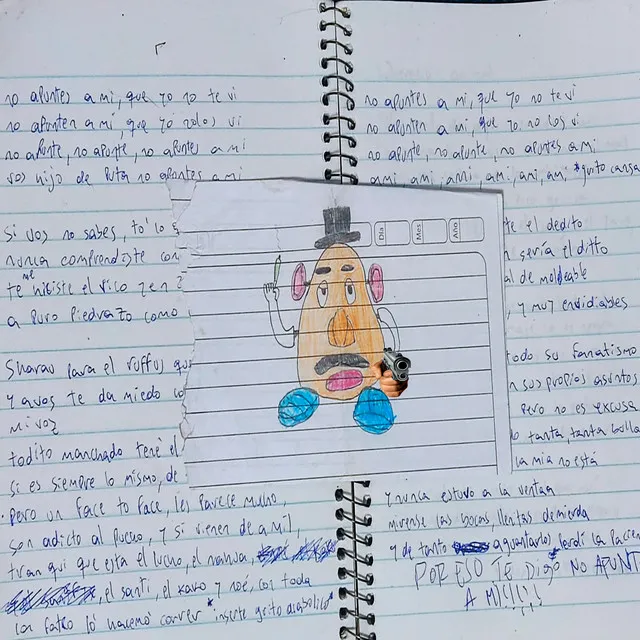 no apuntes a mi, que yo no te vi
no apunten a mi, que yo no los vi
no apunte, no apunte, no apuntes a mi
vos hijo de puta no apuntes a mi
Si vos no sabes, to' lo
nunca comprendiste
te me hiciste el rico
a puro piedrazo como
para el ruffus que
y a vos te da miedo
mi voz
todito manchado tené el
si es siempre lo mismo, de
pero un face to face, les parece mucho,
son adicto al pucho, y si vienen de a mil
tran qui que esta el lucho, el nahua,
el santi, el kavo y noé, con toda
los hacemo correr *inserte grito diabolico*
Día
Mes
Año
no apuntes a mi, que yo no te vi
no apunten a mi, que yo no los vi
no apunte, no apunte, no apuntes a mi
ami, ami, ami, ami, ami, ami *grito
te el dedito
sería el ditto
de moldeable
, y muy envidiables
todo su fanatismo
sus propios asuntos
Pero no es excusa
tanta, tanta bulla
la mia no está
y nunca estuvo a la ventan
mirense las bocas, llenitas de mierda
y de tanto aguantarlos perdí la pacien
POR ESO TE DIGO NO APUNT
A MI!!!!!